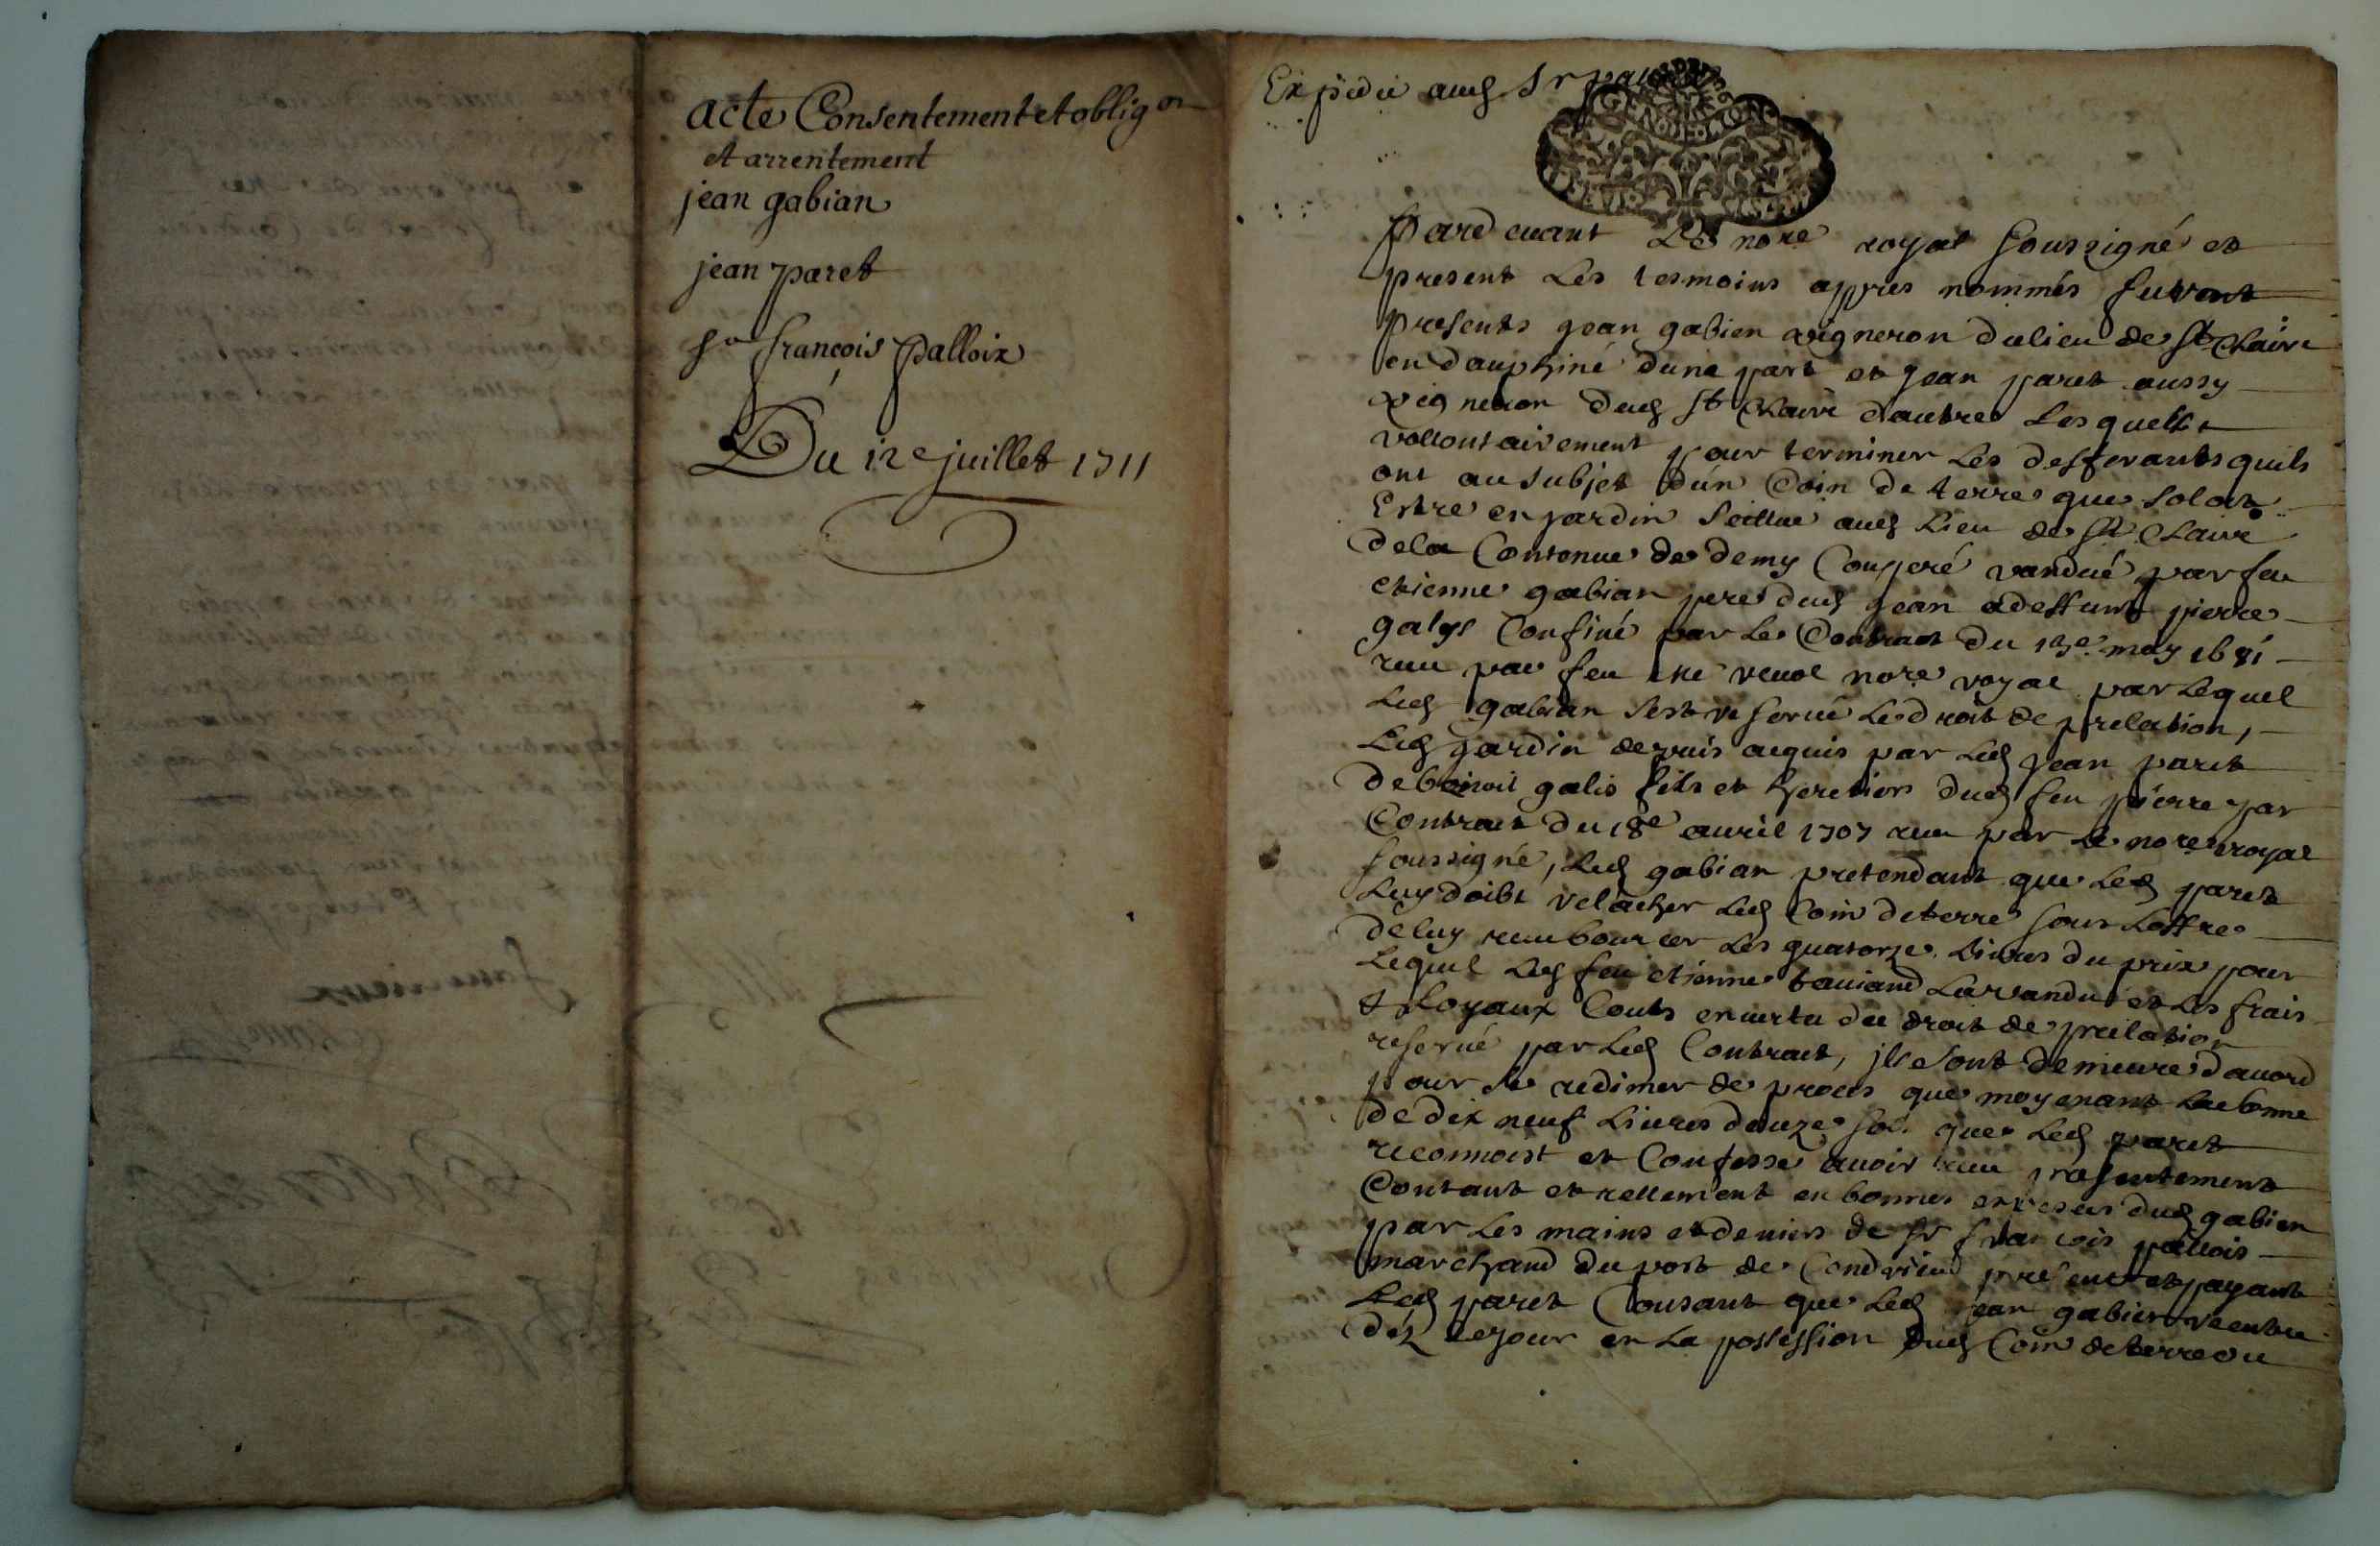 acte Consentement et oblig on
et arrentement
jean gabian
jean paret
sr françois palloix
Du 12e juillet 1711
Expedié aud Sr
Pardevant Le nore royal soussigné et
present Les tesmoins apprés nommés furent
presents jean gabien vigneron du lieu de St Clair
en dauphiné dune part et jean paret aussy
vigneron dud St Clair dautre Lesquelles
vollontairement pour terminer Les defferants quils
ont au subjet d'un Coin de terre que soloit
Estre en jardin scittue aud Lieu de St Clair
dela Contenue de demy Couperé vandué par feu
etienne gabian pere dud jean a deffunt pierre
galys Confiné par Le Contract du may 1681
receu par feu me nore royal par Lequel
Led gabian sest reservé Le droit de prelation,
Led jardin depuis acquis par Led jean paret
de benoit galis fils et heretier dud feu pierre par
Contract du 18e avril 1707 receu par Le nore royal
soussigné, Led gabian pretendant que Led paret
Luy doibt relacher Led Coin deterre sous Loffre
deluy rembourcer Les quatorze Livres du prix pour
Lequel Led feu etienne La vandu et Les frais
& Loyaux Couts en vertu du droit de prelation
reservé par Led Contract, ils sont demeuré dacord
pour se redimer de proces que moyenant La somme
de dix neuf Livres douze sols que Led paret
reconnoist et Confesse avoir receu presentement
Contant et rellement en bonnes especes dud gabien
par Les mains et deniers de sr francois pallois
marchand du port de Condrieu present et payant
Led paret Consant que Led jean gabien reentre
déz cejour en La possession dud Coin deterre ou